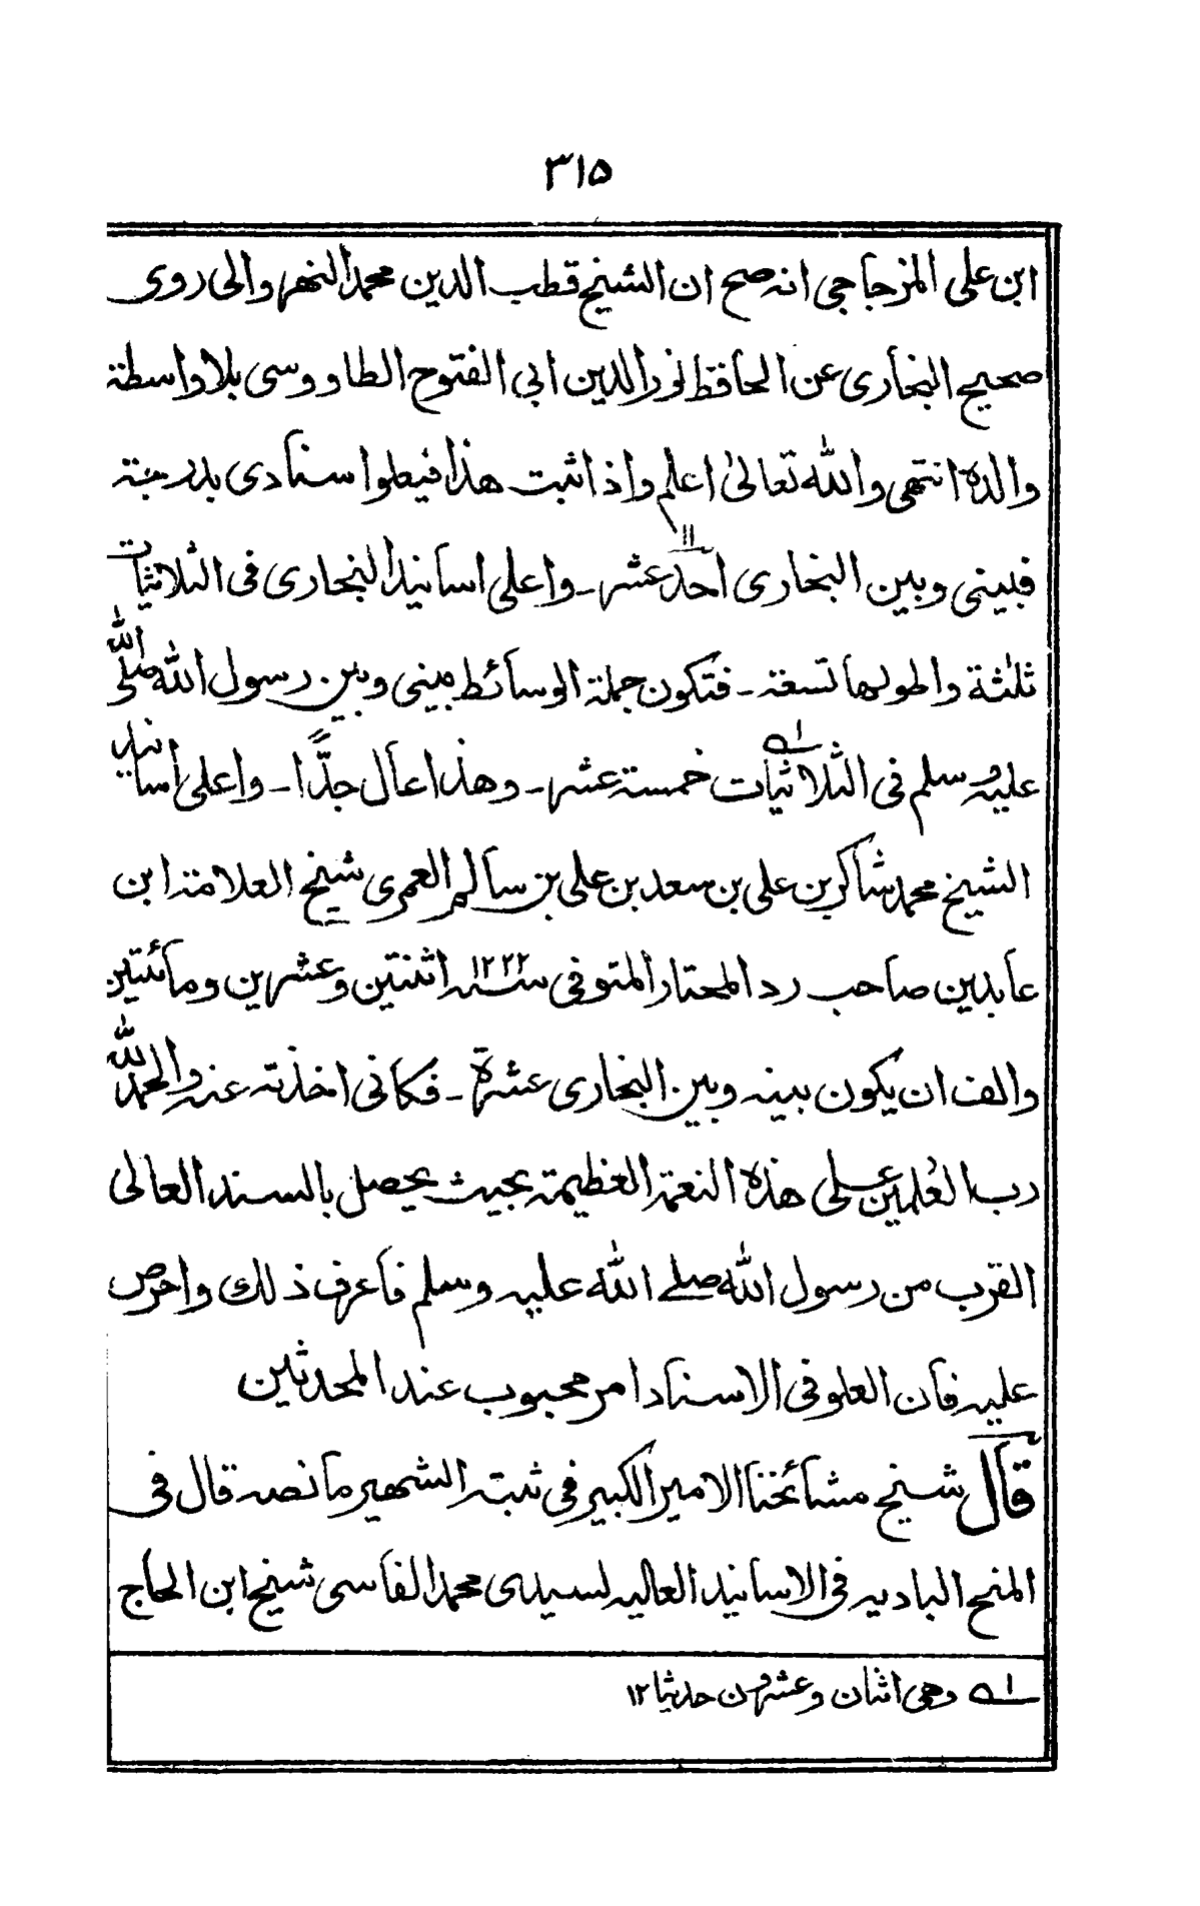 ۳۱۵
ابن علی المزجاجی انہ صح ان الشیخ قطب الدین محمد النھروالی روی
صحیح البخاری عن الحافظ نور الدین ابی الفتوح الطاووسی بلا واسطۃ
والدہ انتھی واللہ تعالیٰ اعلم واذا ثبت ھذا فیعلوا سنادی بدرجۃ
فبینی وبین البخاری احد عشر ۱۱ ۔ واعلی اسانید البخاری فی الثلاثیات
ثلثۃ واطولھا تسعۃ ۔ فتکون جملۃ الوسائط بینی وبین رسول اللہ صلی اللہ
علیہ وسلم فی الثلاثیات ؎۱ خمسۃ عشر ۔ وھذا عال جدًّا ۔ واعلی اسانید
الشیخ محمد شاکر بن علی بن سعد بن علی بن سالم العمری شیخ العلامۃ ابن
عابدین صاحب رد المحتار المتوفی سنہ ۱۲۲۲ اثنتین وعشرین ومائتین
والف ان یکون بینہ وبین البخاری عشرۃ ۔ فکانی اخذتہ عنہ والحمد للہ
رب العٰلمین علی ھذہ النعمۃ العظیمۃ بحیث یحصل بالسند العالی
القرب من رسول اللہ صلے اللہ علیہ وسلم فاعرف ذلک واحرص
علیہ فان العلو فی الاسناد امر محبوب عند المحدثین
قال شیخ مشائخنا الامیر الکبیر فی ثبتہ الشھیر ما نصہ قال فی
المنح البادیہ فی الاسانید العالیہ لسیدی محمد الفاسی شیخ ابن الحاج
؎۱ وھی اثنان وعشرون حدیثا ۱۲